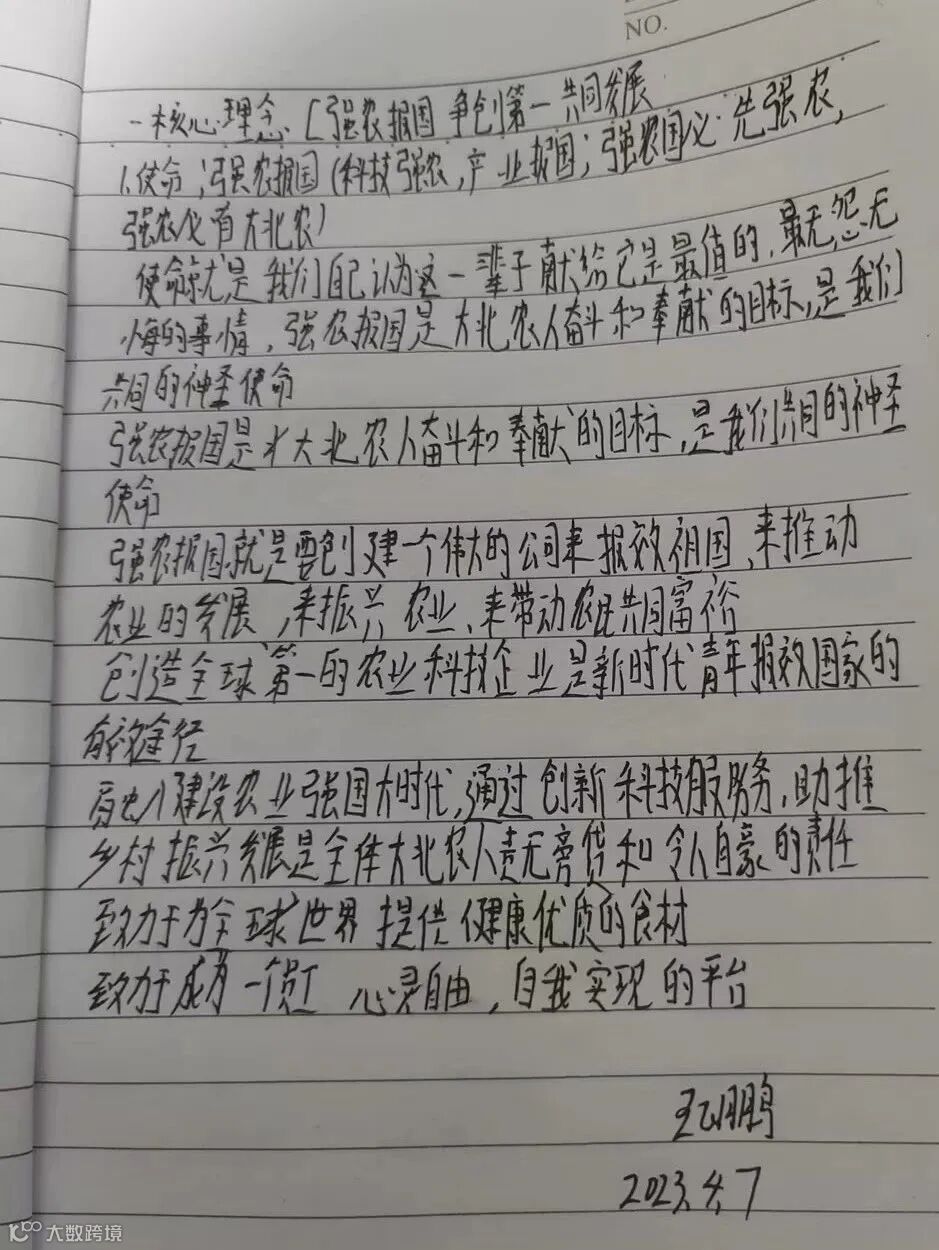 NO.
一核心理念［强农报国 争创第一 共同发展
1.使命；强农报国（科技强农，产业报国；强农国必先强农，
强农必有大北农）
使命就是我们自己认为这一辈子献给它是最值的，最无怨无
悔的事情，强农报国是大北农人奋斗和奉献的目标，是我们
共同的神圣使命
强农报国是大北农人奋斗和奉献的目标，是我们共同的神圣
使命
强农报国就是要创建一个伟大的公司来报效祖国、来推动
农业的发展，来振兴农业、来带动农民共同富裕
创造全球第一的农业科技企业是新时代青年报效国家的
有效途径
建设农业强国大时代，通过创新科技服务，助推
乡村振兴发展是全体大北农人责无旁贷和令人自豪的责任
致力于为全球世界提供健康优质的食材
致力于成为一个员工 心灵自由，自我实现的平台
鹏
2023.4.7
大数跨境